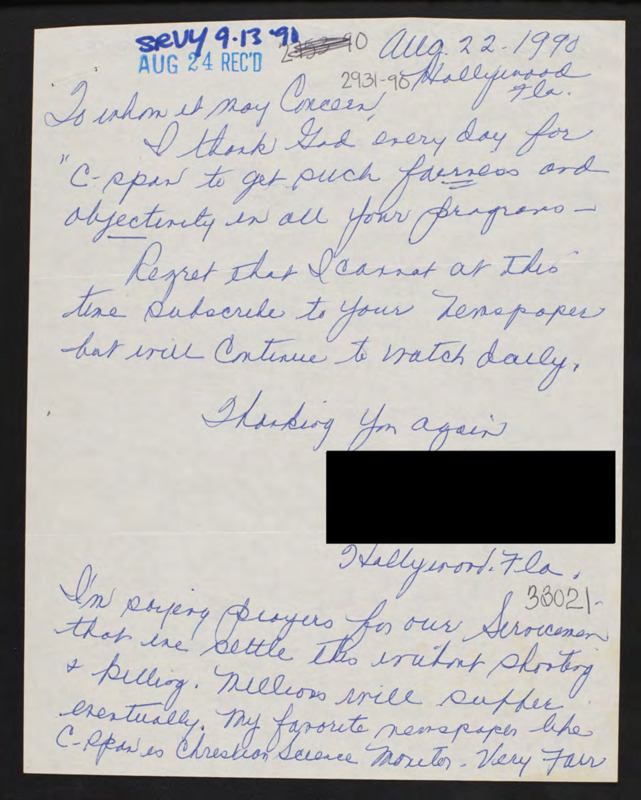 SRVY 9-13 '90
AUG 24 REC'D
Aug. 22-1990
2931-90
Hollywood
Fla.
To whom it may Concern,
I thank God every day for
"C-span to get such fairness and
objectivity in all your programs —
Regret that I cannot at this
time subscribe to your Newspaper
but will Continue to watch daily.
Thanking you again
Hollywood. Fla.
33021-
I'm saying prayers for our Servicemen
that we settle this without shooting
& killing. Millions will suffer
eventually. My favorite newspaper like
C-Span is Christian Science Monitor. Very Fair